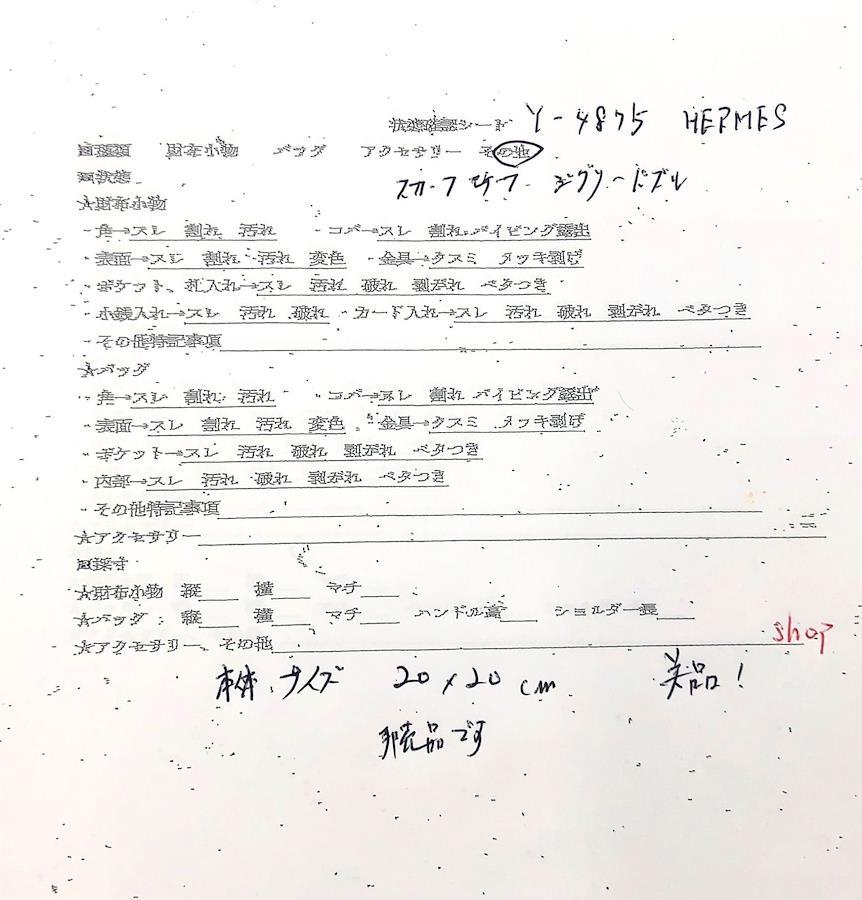 状態確認シート Y-4875 HERMES
■種類 財布小物 バッグ アクセサリー その他
■状態 スカーフモチーフ ジグソーパズル
★財布小物
・角→スレ 割れ 汚れ ・コバ→スレ 割れ パイピング露出
・表面→スレ 割れ 汚れ 変色 ・金具→クスミ メッキ剥げ
・ポケット、札入れ→スレ 汚れ 破れ 剥がれ ベタつき
・小銭入れ→スレ 汚れ 破れ ・カード入れ→スレ 汚れ 破れ 剥がれ ベタつき
・その他特記事項
★バッグ
・角→スレ 割れ 汚れ ・コバ→スレ 割れ パイピング露出
・表面→スレ 割れ 汚れ 変色 ・金具→クスミ メッキ剥げ
・ポケット→スレ 汚れ 破れ 剥がれ ベタつき
・内部→スレ 汚れ 破れ 剥がれ ベタつき
・その他特記事項
★アクセサリー
■採寸
★財布小物 縦 横 マチ
★バッグ：縦 横 マチ ハンドル高 ショルダー長
★アクセサリー、その他
shop
本体サイズ 20×20cm 美品！
非売品です